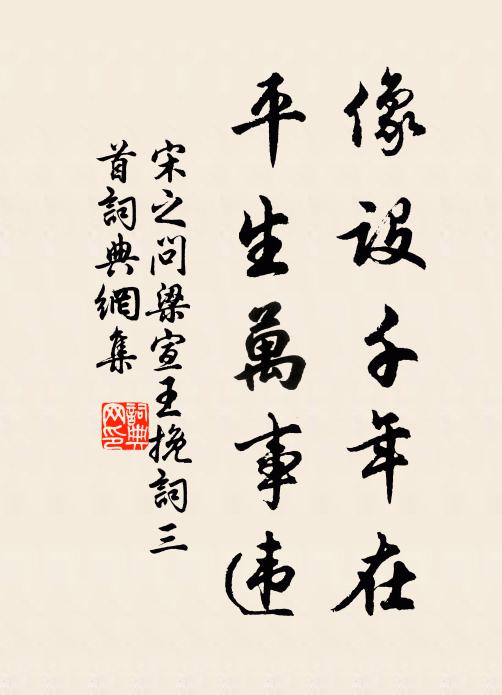 像設千年在
平生萬事违
宋之问梁宣王挽詞三
首詞典網集
詞典
网印